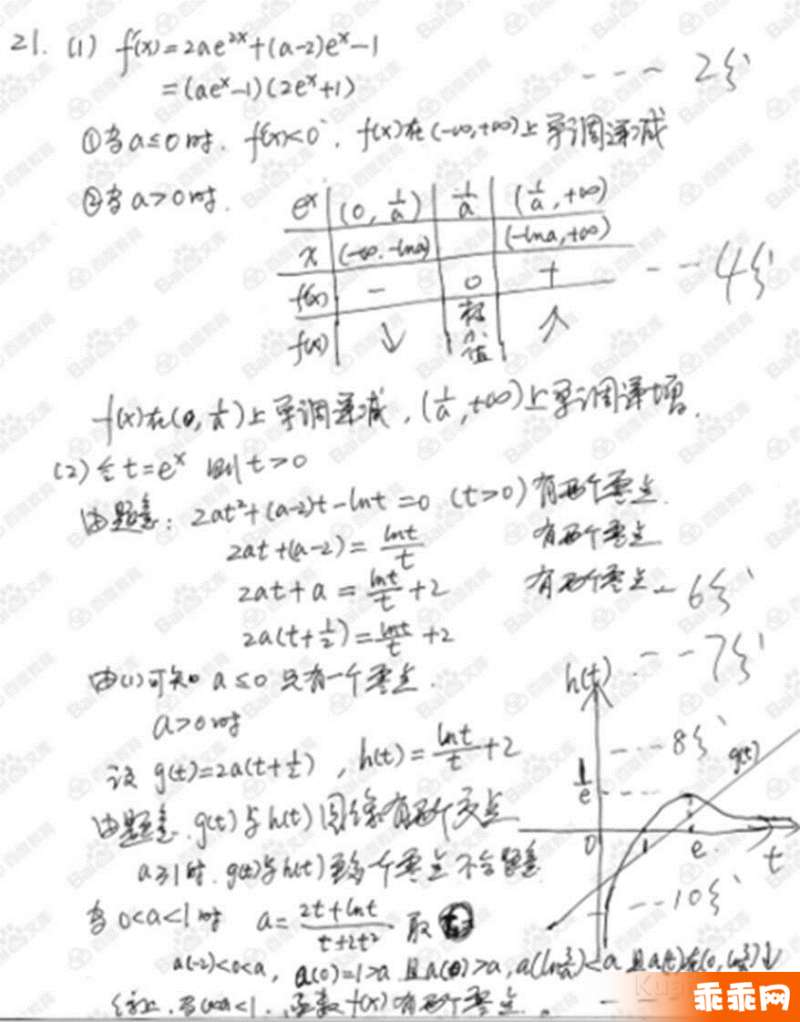 21. (1) f'(x)=2ae^{2x}+(a-2)e^x-1
=(ae^x-1)(2e^x+1) ---- 2分
①当a≤0时. f'(x)<0, f(x)在(-∞,+∞)上单调递减
②当a>0时.
e^x | (0, 1/a) | 1/a | (1/a, +∞)
x | (-∞, -lna) | | (-lna, +∞)
f'(x) | - | 0 | + --- 4分
f(x) | ↓ | 极小值 | ↗
f(x)在(0, 1/a)上单调递减, (1/a, +∞)上单调递增.
(2) 令t=e^x 则t>0
由题意: 2at²+(a-2)t-lnt=0 (t>0) 有两个零点.
2at+(a-2)=lnt/t 有两个零点
2at+a=lnt/t+2 有两个零点 -- 6分
2a(t+1/2)=lnt/t+2 --- 7分
由(1)可知 a≤0 只有一个零点.
a>0时
设 g(t)=2a(t+1/2), h(t)=lnt/t+2 ---8分
由题意. g(t)与h(t)图像有两个交点
a≥1时. g(t)与h(t)至多一个零点 不合题意
当0<a<1时 a=(2t+lnt)/(t+2t²) 取 ---10分
a(-2)<0<a, a(0)=1>a 且a(0)>a,
综上, 当0<a<1, 函数f(x)有两个零点.
h(t)
g(t)
1/e
0 1 e t
Bai百度文库
百度教育
乖乖网